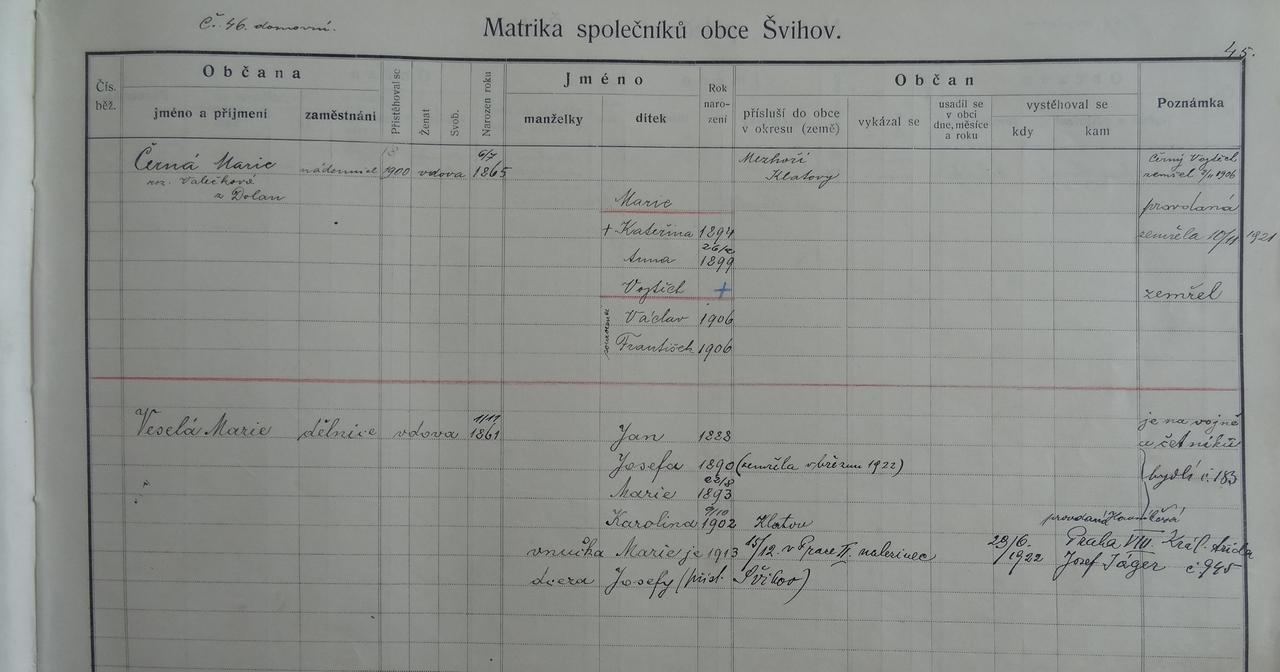 Č. 46. domovní.
Matrika společníků obce Švihov.
45.
Čís. běž.
Občana
jméno a příjmení
zaměstnání
Přistěhoval se
Ženat
Svob.
Narozen roku
Jméno
manželky
dítek
Rok naro- zení
Občan
přísluší do obce v okresu (země)
vykázal se
usadil se v obci dne, měsíce a roku
vystěhoval se
kdy
kam
Poznámka
Černá Marie 1900 vdova 6/7 1865 Mezhoří Klatovy Černý Vojtěch zemřel 1906
roz. Valečková
z Dolan
Marie provdaná
+ Kateřina 1894 zemřela 10/11 1921
Anna 1899
Vojtěch + zemřel
Václav 1906
František 1906
Veselá Marie dělnice vdova 1/11 1861 Jan 1888 je na vojně u četníků
Josefa 1890 (zemřela v březnu 1922)
Marie 23/8 1893 bydlí č. 183
Karolina 9/10 1902 Klatov provdaná
vnučka Marie je 1913 15/12. v Praze II. nalezinec 23/6. 1922 Praha VIII. Král. třída
dcera Josefy (přísl. Švihov) Josef Jäger č. 945